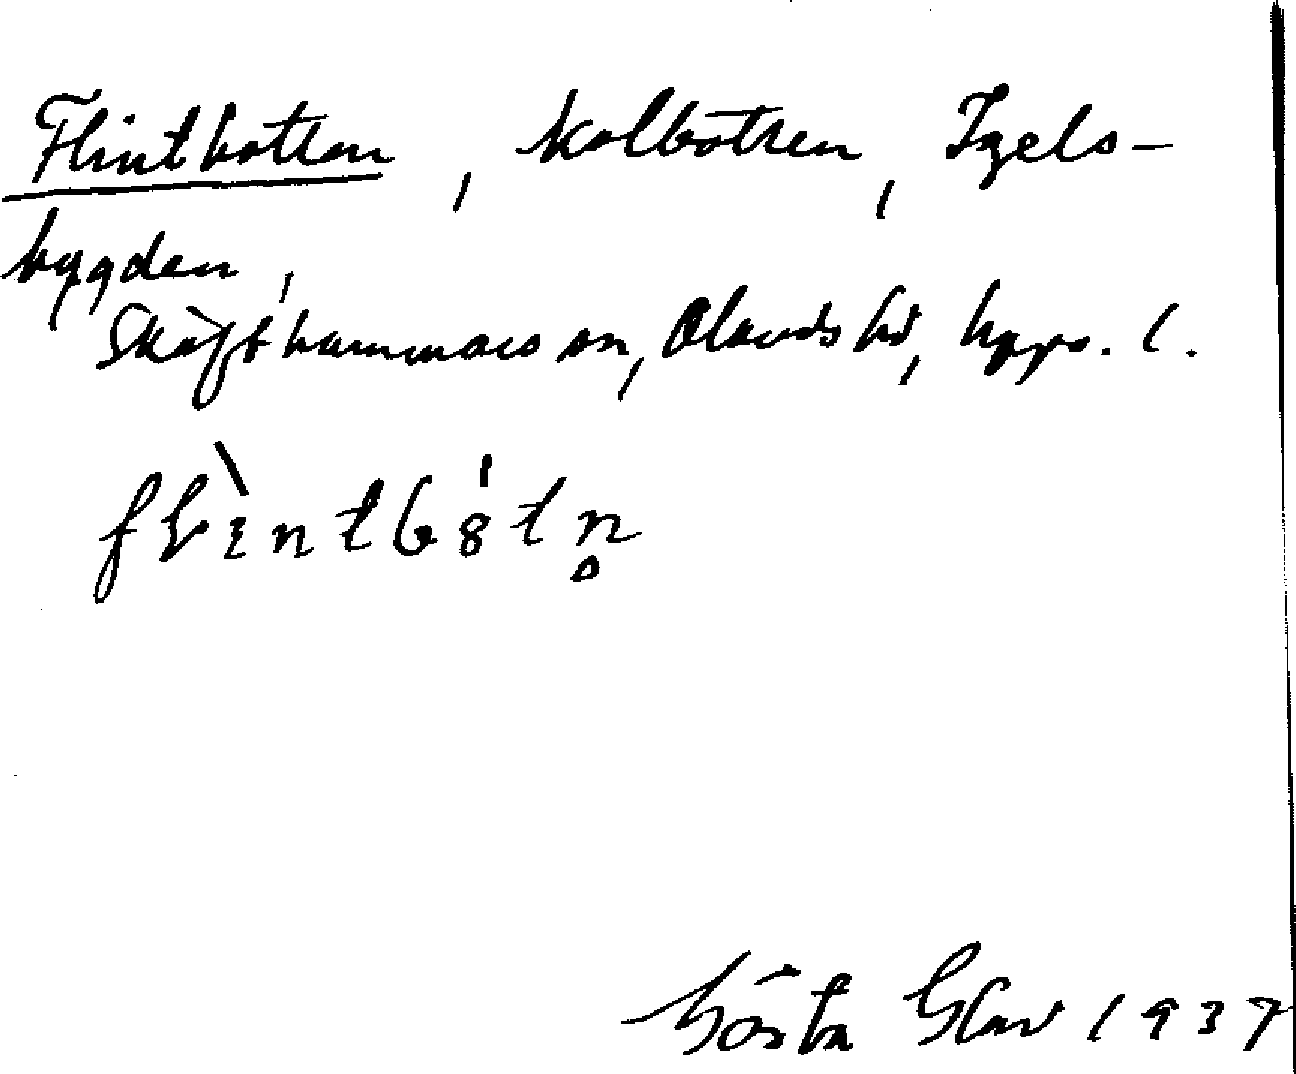 Flintbotten, kolbotten, Igels-
bygden,
Skäfthammars sn, Olands hd, Upps. l.
flìntb8́tn̥
Gösta Glav 1937